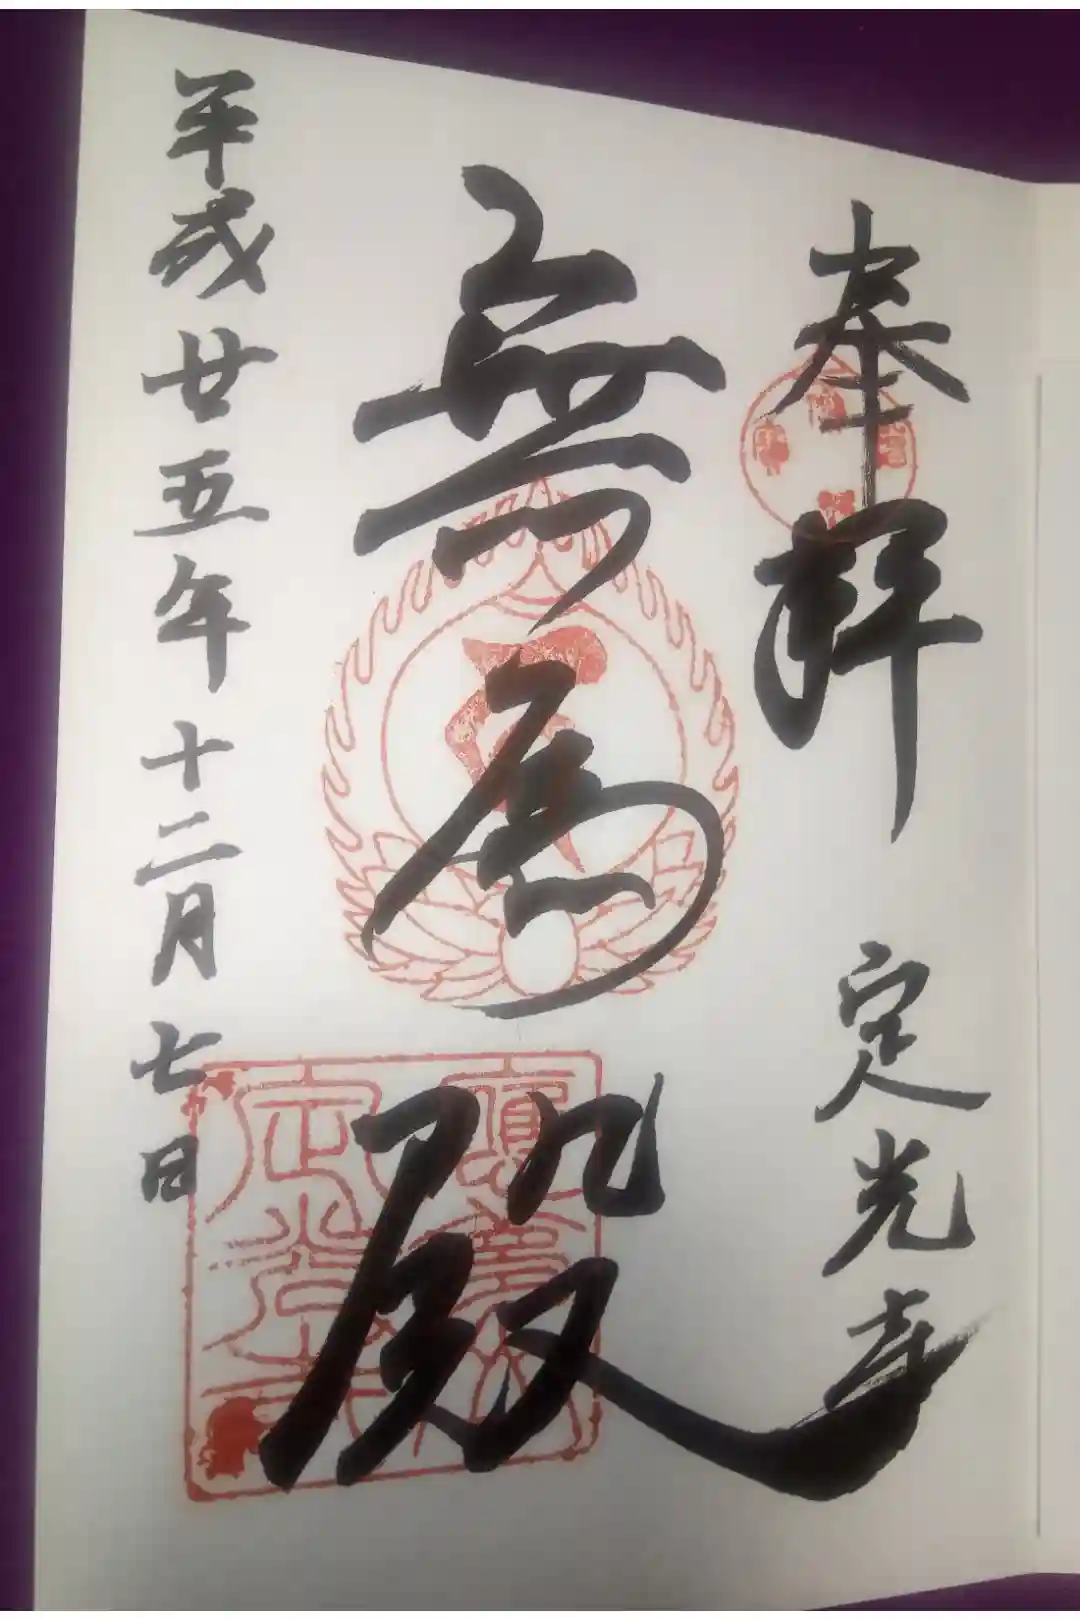 奉拝　定光寺
無為殿
平成廿五年十二月七日